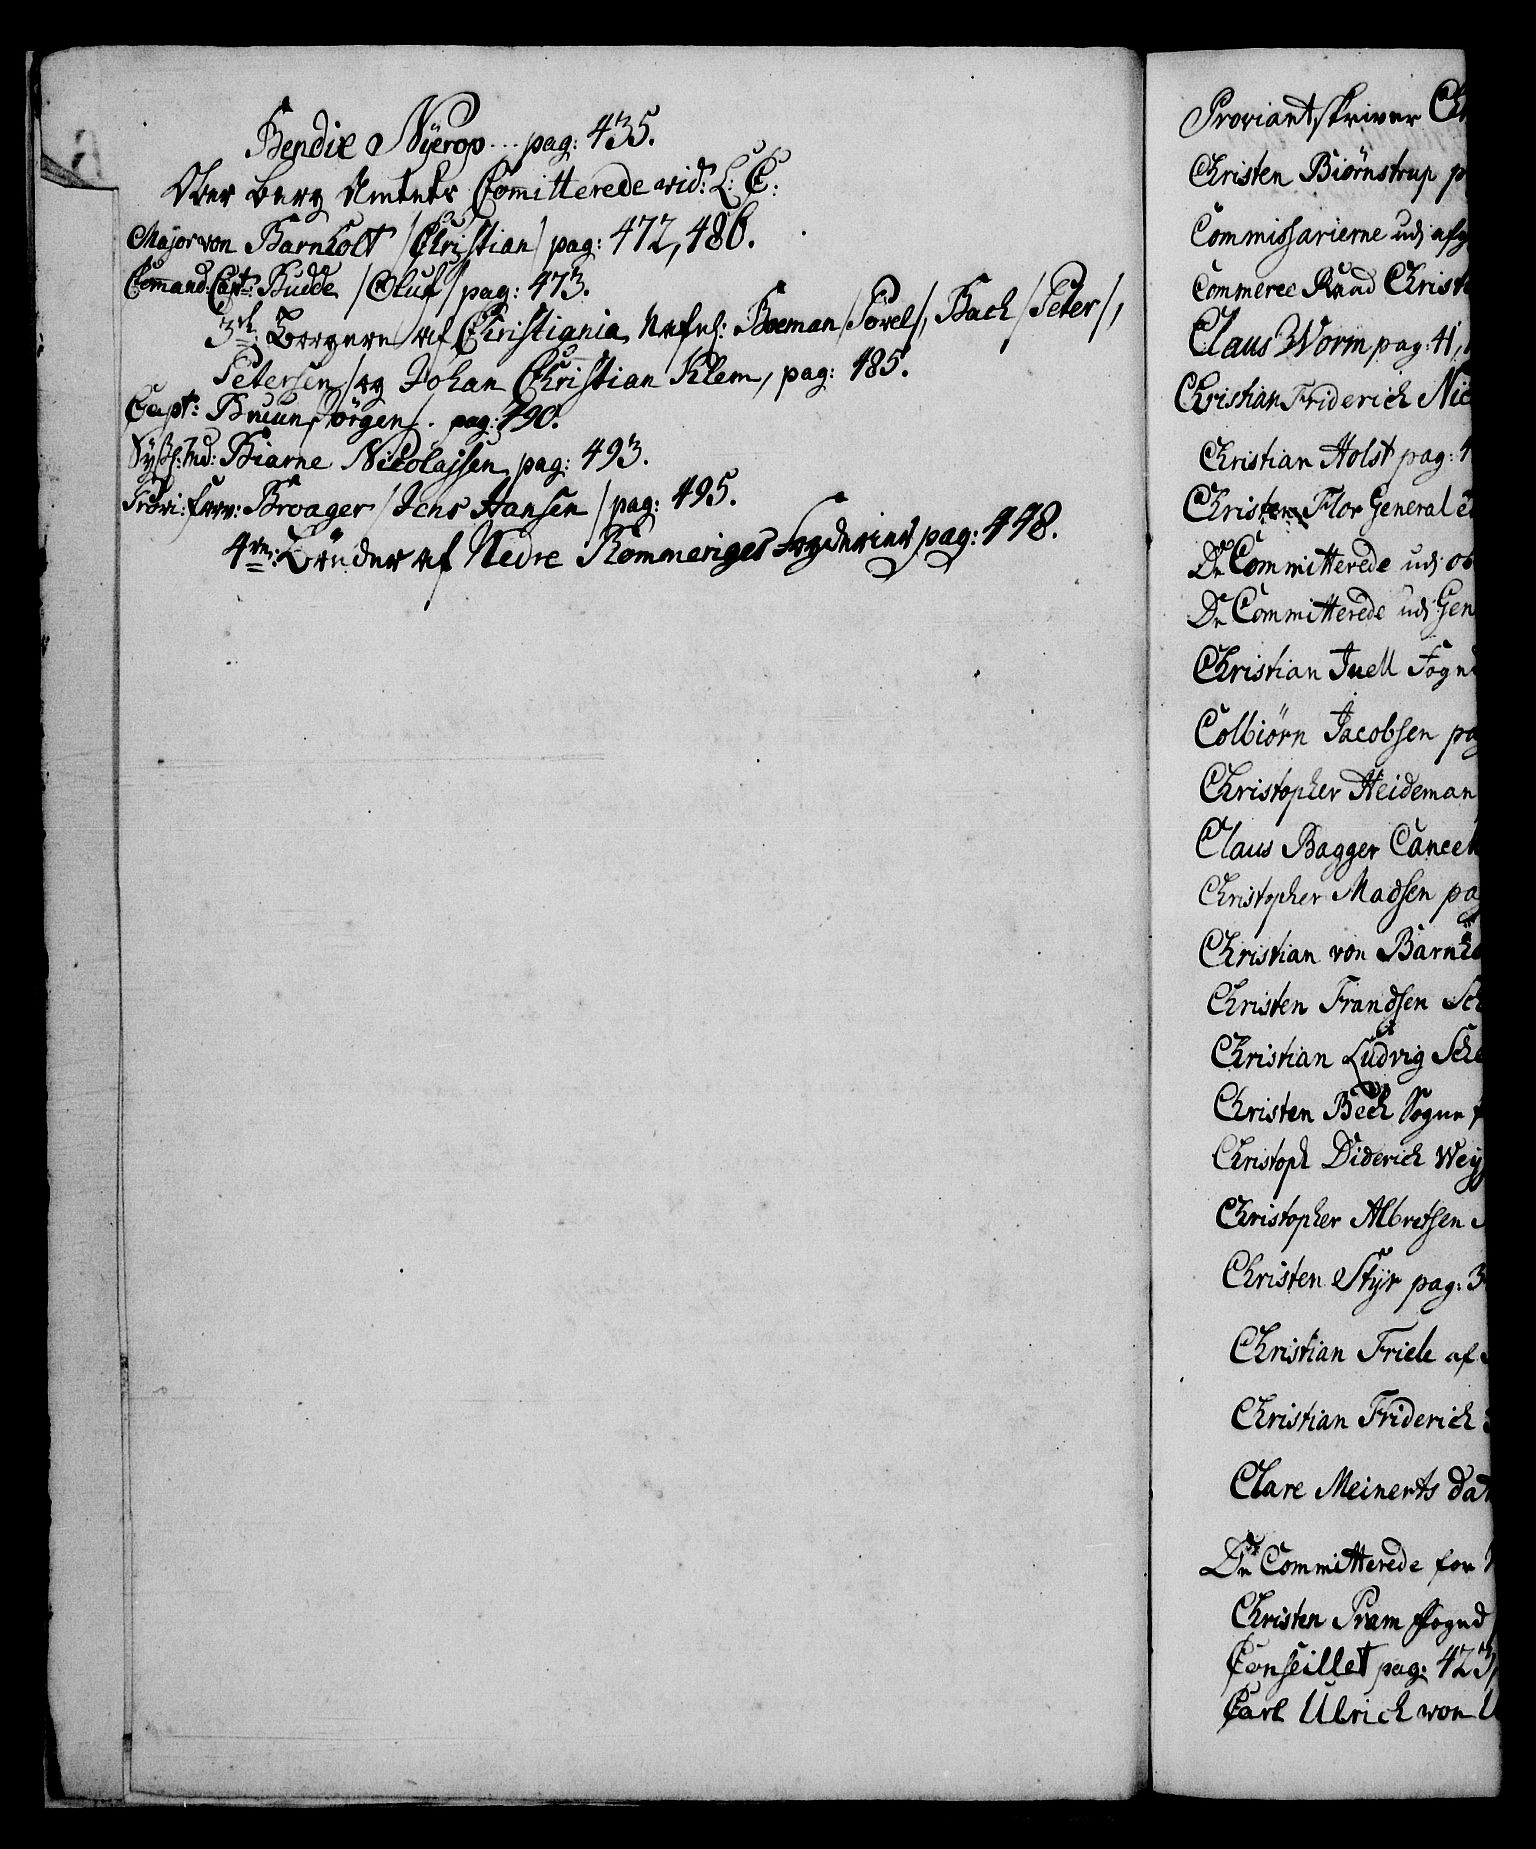 Bendix Nÿerop... pag: 435.
Ober berg Amtets Comitterede vid: L: C:
Major von Barnholt /Christian/ pag: 472, 486.
Command: Capt: Budde /Oluf/ pag: 473.
3de Borgere af Christiania Nafnl: Boeman /Povel/, Bach /Peter/,
Petersen, og Johan Christian Klem, pag: 485.
Capt: Bruun, Jörgen/. pag: 490.
Biarne Nicolajsen, pag: 493.
Provi: forv: Broager /Jens Hansen/ pag: 495.
4re: Bönder af Nedre Rommeriges Fogderiet pag: 448.
Proviantskriver
Christen Biörnstrup
Commissarierne udj
Commerce Raad
Claus Worm pag: 41,
Christian Friderich
Christian Holst pag: 4
Christen Flor General
De Committerede udj
De Committerede udj Gen
Christian Juell Fogd
Colbiörn Jacobsen pag
Christopher Heideman
Claus Bagger Cancell
Christopher Madsen pag
Christian von Barnho
Christen Frandsen
Christian Ludvig Sche
Christen Bech Sogne
Christoph Diderich Wey
Christopher Albretsen
Christen Stÿr pag: 3
Christian Friele af
Christian Friderich
Clare Meinerts dat
De Committerede for
Christen Pram ffogd
Conseillet pag: 423,
Carl Ulrich von